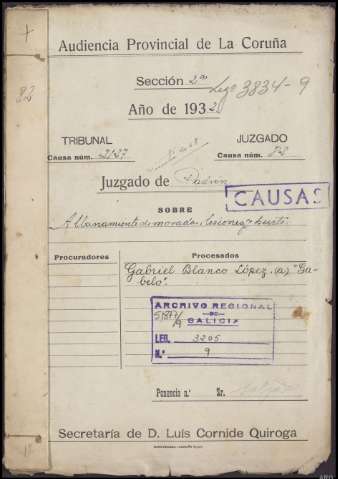 +
82
Audiencia Provincial de La Coruña
Sección 2ª
Lego 3834-9
Año de 1932
TRIBUNAL
JUZGADO
Causa núm. 2127
Causa núm. 82
Juzgado de Padrón
CAUSAS
SOBRE
Allanamiento de morada, lesiones y hurto
Procuradores
Procesados
Gabriel Blanco López. (a) "Ga-
belo".
ARCHIVO REGIONAL
DE
GALICIA
LEG. 3205
N.º 9
Ponencia a.º Sr.
Secretaría de D. Luis Cornide Quiroga